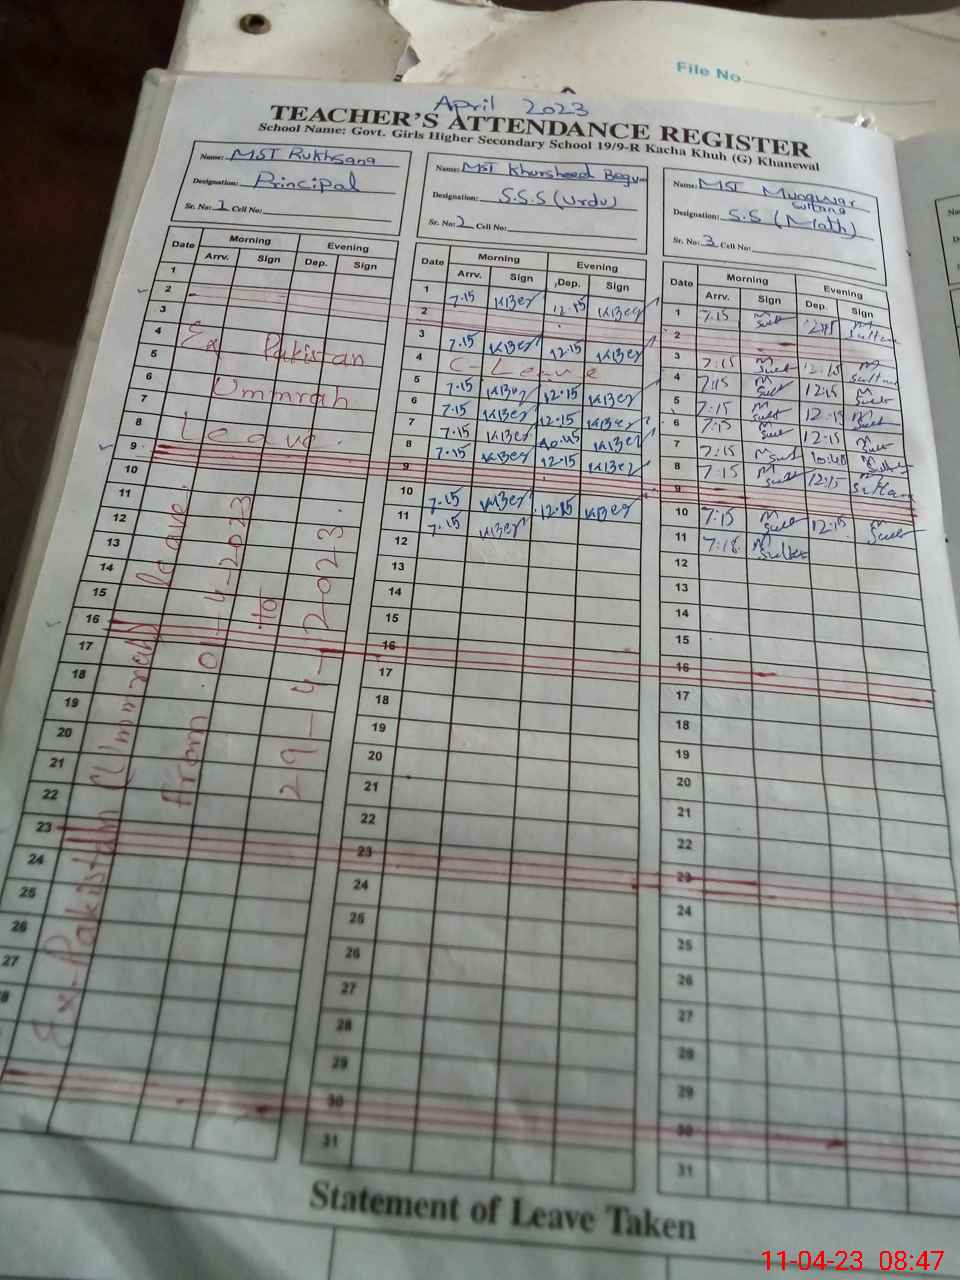 File No
April 2023
TEACHER'S ATTENDANCE REGISTER
School Name: Govt. Girls Higher Secondary School 19/9-R Kacha Khuh (G) Khanewal
Name: MST Rukhsana
Designation: Principal
Sr. No: 1 Cell No:
Date Morning Evening
Arrv. Sign Dep. Sign
1
2
3
4 Ex Pakistan
5
6 Ummrah
7
8 Leave.
9
10
11
12
13
14
15
16
17
18
19
20
21
22
23
24
25
26
27
28
Ex-Pakistan (Ummrah) leave.
from 01-4-2023
to
29-4-2023.
Name: MST Khursheed Begum
Designation: S.S.S (Urdu)
Sr. No: 2 Cell No:
Date Morning Evening
Arrv. Sign Dep. Sign
1 7.15 KBeg 12.15 KBeg
2
3 7.15 KBeg 12.15 KBeg
4 C-Leave
5 7.15 KBeg 12.15 KBeg
6 7.15 KBeg 12.15 KBeg
7 7.15 KBeg 10.45 KBeg
8 7.15 KBeg 12.15 KBeg
9
10 7.15 KBeg 12.15 KBeg
11 7.15 KBeg
12
13
14
15
16
17
18
19
20
21
22
23
24
25
26
27
28
29
30
31
Name: MST Munawar Sultana
Designation: S.S (Math)
Sr. No: 3 Cell No:
Date Morning Evening
Arrv. Sign Dep. Sign
1 7.15 12.15
2
3 7:15 12:15
4 7:15 12:15
5 7:15 12:15
6 7:15 12:15
7 7:15
8 7:15 12:15
9
10 7:15 12:15
11
12
13
14
15
16
17
18
19
20
21
22
23
24
25
26
27
28
29
30
31
Statement of Leave Taken
11-04-23 08:47